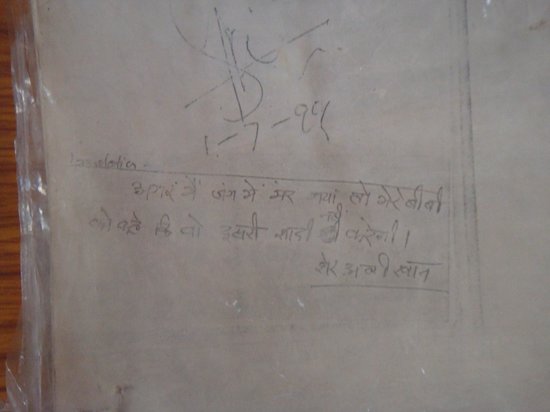 1-7-१५
Translation
अगर मैं जंग में मर गया तो मेरे बीबी
को कहे कि वो दुसरी शादी नहीं करेगी।
शेर अली खान